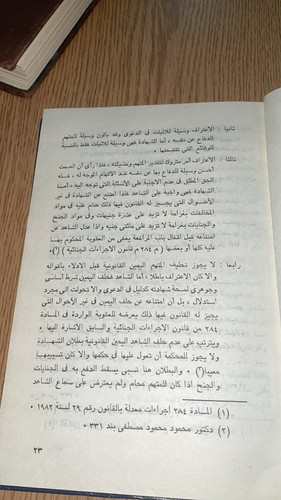 ثانيا : الاعتراف وسيلة للاثبات فى الدعوى وقد يكون وسيلة للمتهم
للدفاع عن نفسه ، أما الشهادة فهى وسيلة للاثبات فقط بالنسبة
للوقائع التى تتضمنها ٠
ثالثا : الاعتراف أمر متروك لتقدير المتهم ومشيئته ، فاذا رأى أن الصمت
أحسن وسيلة للدفاع بها عن نفسه ضد الاتهام الموجه له ، فله
الحق المطلق فى عدم الاجابة على الأسئلة التى توجه اليه ، أما
الشهادة فهى واجبة على الشاهد فاذا امتنع عن الشهادة فى غير
الأحوال التى يجيز له القانون فيها ذلك حكم عليه فى مواد
المخالفات بغرامة لا تزيد على عشرة جنيهات وفى مواد الجنح
والجنايات بغرامة لا تزيد على مائتى جنيه واذا عدل الشاهد عن
امتناعه قبل اقفال باب المرافعة يعفى من العقوبة المحكوم بها
عليه كلها أو بعضها ( م ٢٨٤ من قانون الاجراءات الجنائية ) (١)٠
رابعا : لا يجوز تحليف المتهم اليمين القانونية قبل الادلاء بأقواله
والا كان الاعتراف باطلا ، أما الشاهد فحلف اليمين شرط أساسى
وجوهرى لصحة شهادته كدليل فى الدعوى والا تحولت الى مجرد
استدلال ، بل أن امتناعه عن حلف اليمين فى غير الأحوال التى
يجيز له القانون فيها ذلك يعرضه للعقوبة الواردة فى المادة
٢٨٤ من قانون الاجراءات الجنائية والسابق الاشارة اليها ٠
ويترتب على عدم حلف الشاهد اليمين القانونية بطلان الشهادة
ولا يجوز للمحكمة أن تعول عليها فى حكمها والا كان تسبيبها
معيبا(٢) ٠ والبطلان هنا نسبى يسقط الدفع به فى الجنايات
والجنح اذا كان للمتهم محام ولم يعترض على سماع الشاهد
(١) المادة ٢٨٤ اجراءات معدلة بالقانون رقم ٢٩ لسنة ١٩٨٢
(٢) دكتور محمود محمود مصطفى بند ٣٣١ ٠
٢٣